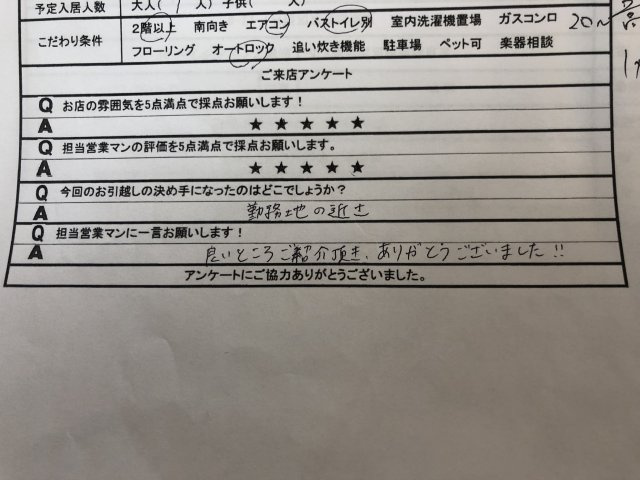 予定入居人数 大人( 1 人) 子供( 人)
こだわり条件 2階以上 南向き エアコン バストイレ別 室内洗濯機置場 ガスコンロ 20～
フローリング オートロック 追い炊き機能 駐車場 ペット可 楽器相談
ご来店アンケート
Q お店の雰囲気を5点満点で採点お願いします！
A ★ ★ ★ ★ ★
Q 担当営業マンの評価を5点満点で採点お願いします。
A ★ ★ ★ ★ ★
Q 今回のお引越しの決め手になったのはどこでしょうか？
A 勤務地の近さ
Q 担当営業マンに一言お願いします！
A 良いところご紹介頂き、ありがとうございました!!
アンケートにご協力ありがとうございました。